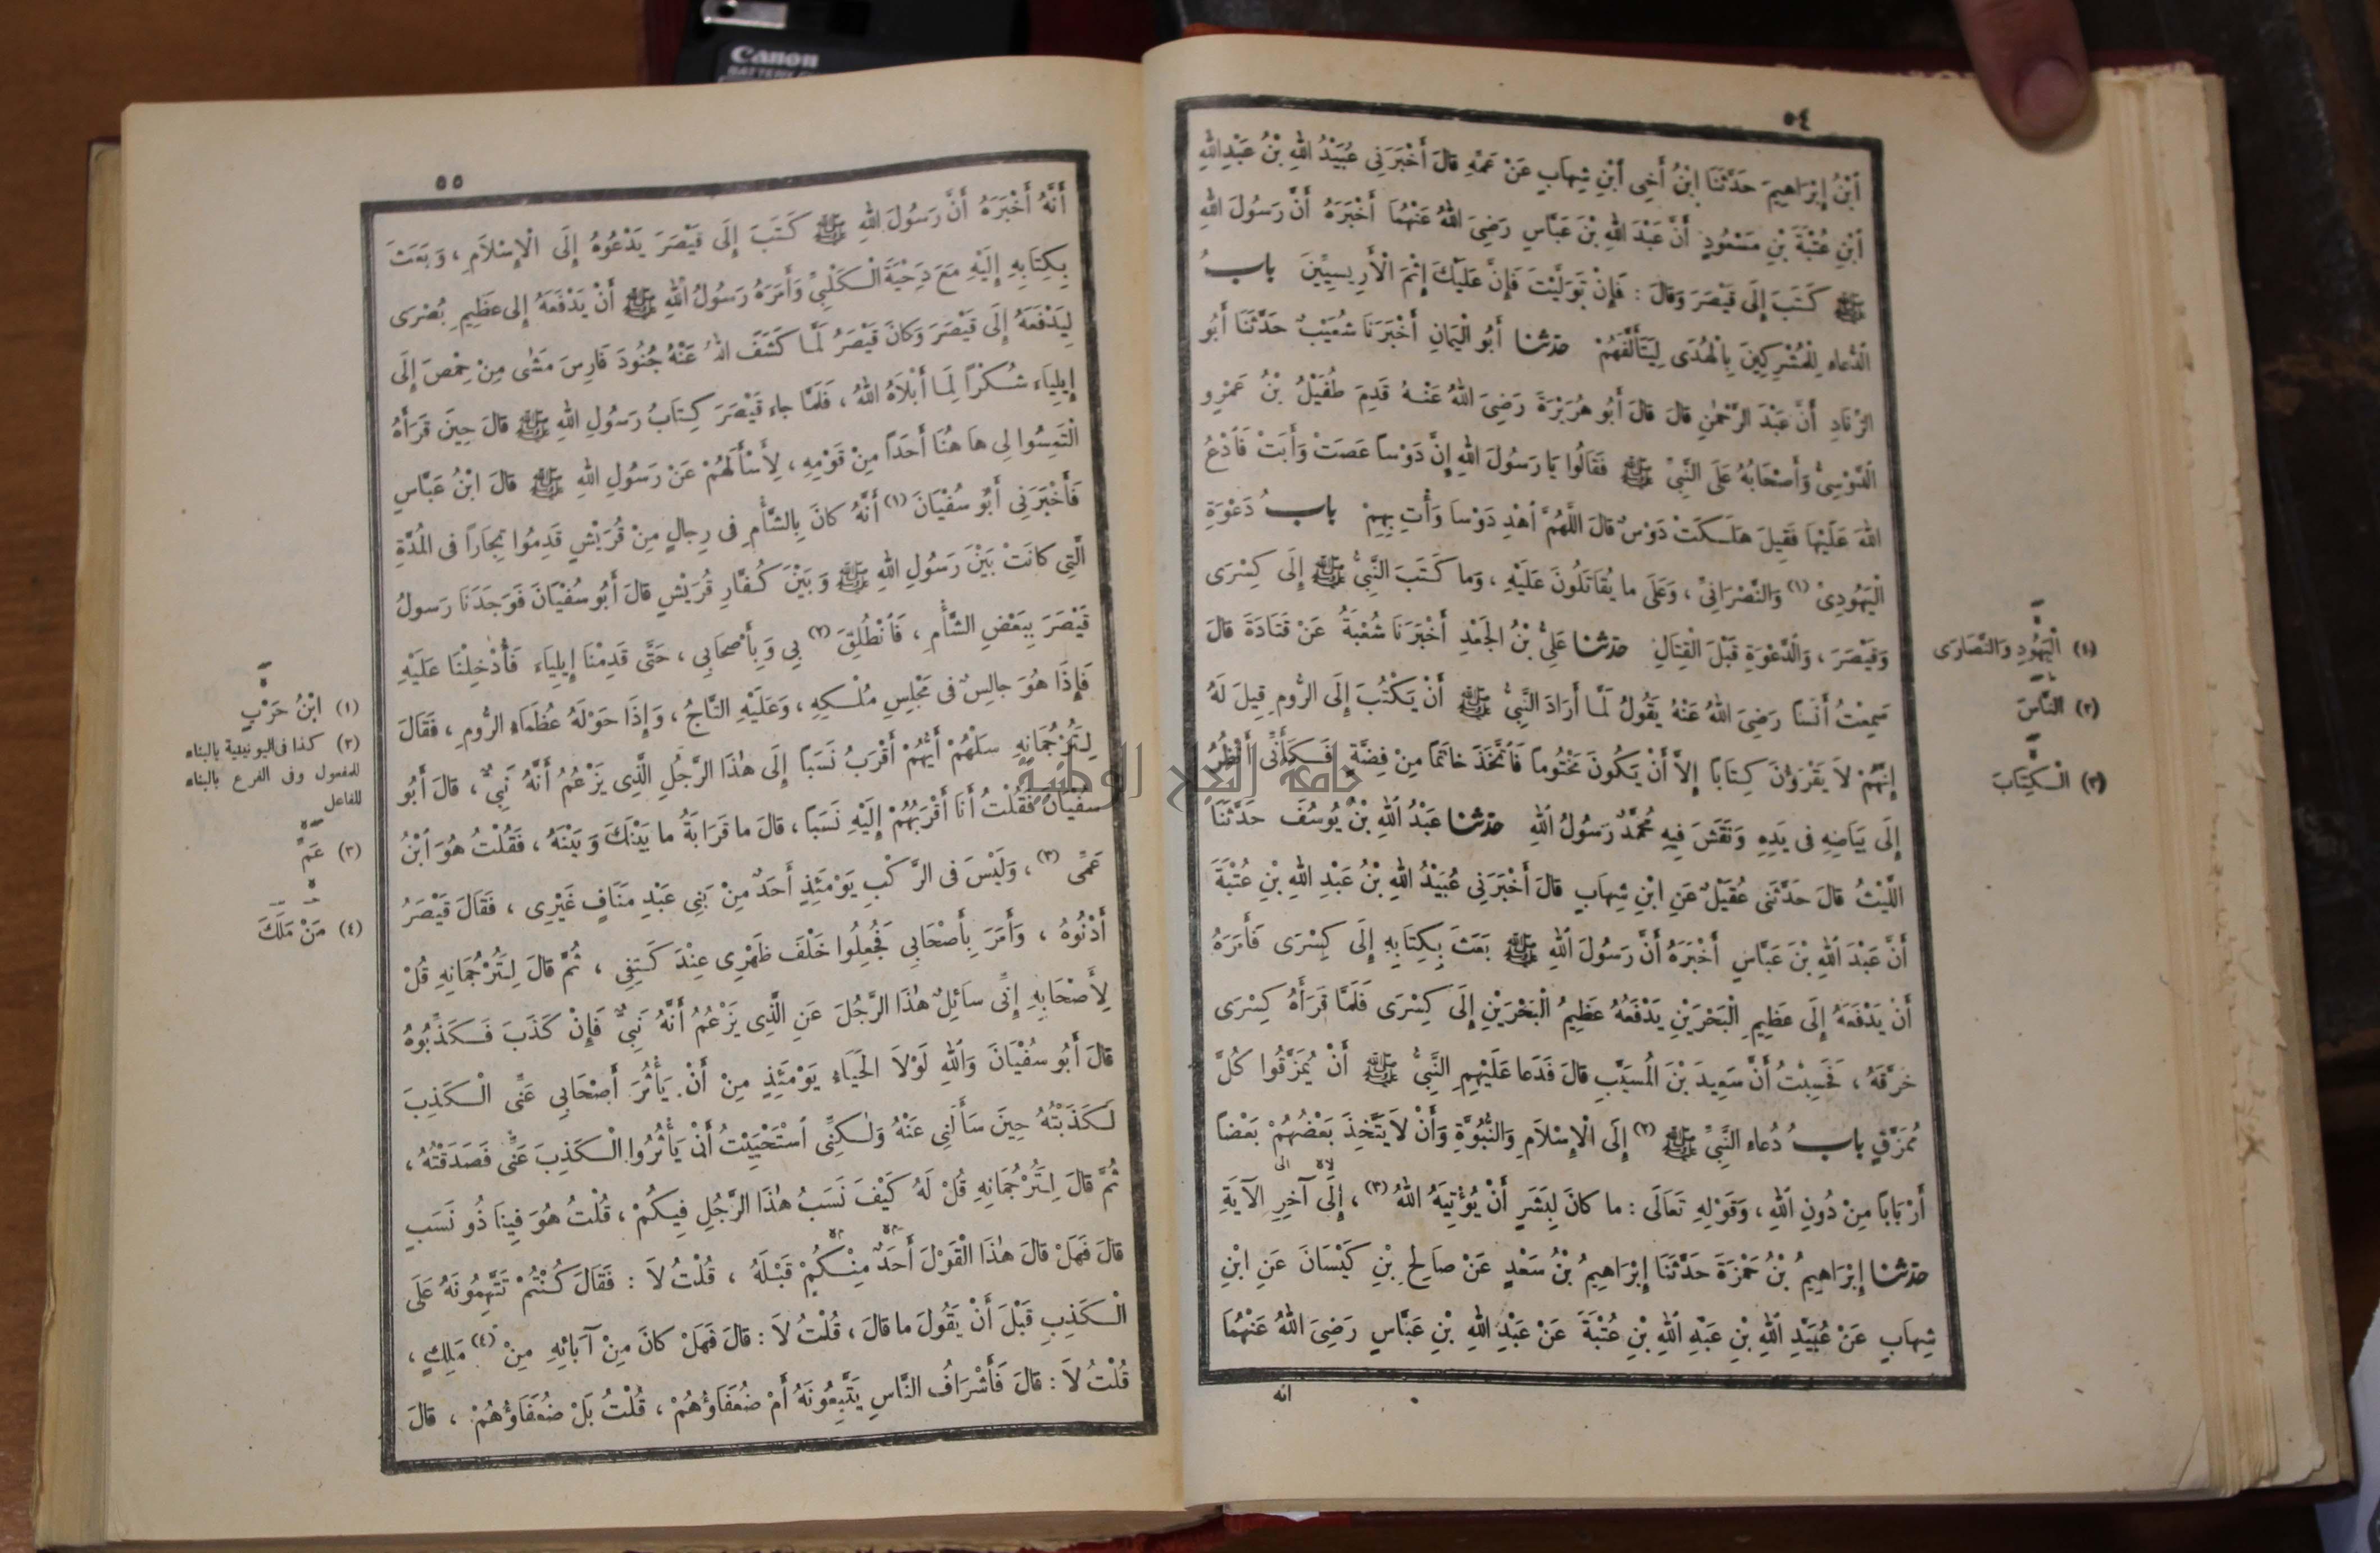 Canon
٥٤
ٱبْنُ إِبْرَاهِيمَ حَدَّثَنَا ابْنُ أَخِي ٱبْنِ شِهَابٍ عَنْ عَمِّهِ قالَ أَخْبَرَنِي عُبَيْدُ اللهِ بْنُ عَبْدِ اللهِ
ٱبْنِ عُتْبَةَ بْنِ مَسْعُودٍ أَنَّ عَبْدَ اللهِ بْنَ عَبَّاسٍ رَضِيَ اللهُ عَنْهُمَا أَخْبَرَهُ أَنَّ رَسُولَ اللهِ
ﷺ كَتَبَ إِلَى قَيْصَرَ وَقالَ : فَإِنْ تَوَلَّيْتَ فَإِنَّ عَلَيْكَ إِثْمَ الْأَرِيسِيِّينَ بابُ
ٱلدُّعاءِ لِلْمُشْرِكِينَ بِالْهُدَى لِيَتَأَلَّفَهُمْ حدثنا أَبُو الْيَمَانِ أَخْبَرَنَا شُعَيْبٌ حَدَّثَنَا أَبُو
الزِّنَادِ أَنَّ عَبْدَ الرَّحْمٰنِ قالَ قالَ أَبُو هُرَيْرَةَ رَضِيَ اللهُ عَنْهُ قَدِمَ طُفَيْلُ بْنُ عَمْرٍو
ٱلدَّوْسِيُّ وَأَصْحَابُهُ عَلَى النَّبِيِّ ﷺ فَقَالُوا يَا رَسُولَ اللهِ إِنَّ دَوْسًا عَصَتْ وَأَبَتْ فَٱدْعُ
اللهَ عَلَيْهَا فَقِيلَ هَلَكَتْ دَوْسٌ قالَ اللَّهُمَّ ٱهْدِ دَوْسًا وَأْتِ بِهِمْ بابُ دَعْوَةِ
الْيَهُودِيِّ (١) وَالنَّصْرَانِيِّ ، وَعَلَى ما يُقَاتَلُونَ عَلَيْهِ ، وَما كَتَبَ النَّبِيُّ ﷺ إِلَى كِسْرَى
وَقَيْصَرَ ، وَالدَّعْوَةِ قَبْلَ الْقِتَالِ حدثنا عَلِيُّ بْنُ الجَعْدِ أَخْبَرَنَا شُعْبَةُ عَنْ قَتَادَةَ قالَ
سَمِعْتُ أَنَسًا رَضِيَ اللهُ عَنْهُ يَقُولُ لَمَّا أَرَادَ النَّبِيُّ ﷺ أَنْ يَكْتُبَ إِلَى الرُّومِ قِيلَ لَهُ
إِنَّهُمْ لاَ يَقْرَؤُنَ كِتَابًا إِلاَّ أَنْ يَكُونَ مَخْتُومًا فَٱتَّخَذَ خاتَمًا مِنْ فِضَّةٍ فَكَأَنِّي أَنْظُرُ
إِلَى بَيَاضِهِ فى يَدِهِ وَنَقَشَ فِيهِ مُحَمَّدٌ رَسُولُ اللهِ حدثنا عَبْدُ اللهِ بْنُ يُوسُفَ حَدَّثَنَا
اللَّيْثُ قالَ حَدَّثَنِي عُقَيْلٌ عَنِ ابْنِ شِهَابٍ قالَ أَخْبَرَنِي عُبَيْدُ اللهِ بْنُ عَبْدِ اللهِ بْنِ عُتْبَةَ
أَنَّ عَبْدَ اللهِ بْنَ عَبَّاسٍ أَخْبَرَهُ أَنَّ رَسُولَ اللهِ ﷺ بَعَثَ بِكِتَابِهِ إِلَى كِسْرَى فَأَمَرَهُ
أَنْ يَدْفَعَهُ إِلَى عَظِيمِ الْبَحْرَيْنِ يَدْفَعُهُ عَظِيمُ الْبَحْرَيْنِ إِلَى كِسْرَى فَلَمَّا قَرَأَهُ كِسْرَى
خَرَّقَهُ ، فَحَسِبْتُ أَنَّ سَعِيدَ بْنَ المُسَيَّبِ قالَ فَدَعا عَلَيْهِمِ النَّبِيُّ ﷺ أَنْ يُمَزَّقُوا كُلَّ
مُمَزَّقٍ بابُ دُعاء النَّبِيِّ ﷺ (٢) إِلَى الْإِسْلاَمِ وَالنُّبُوَّةِ وَأَنْ لاَ يَتَّخِذَ بَعْضُهُمْ بَعْضًا
أَرْبَابًا مِنْ دُونِ اللهِ ، وَقَوْلِهِ تَعَالَى : ما كانَ لِبَشَرٍ أَنْ يُؤْتِيَهُ اللهُ (٣) ، إِلَى آخِرِ الآيَةِ
حدثنا إِبْرَاهِيمُ بْنُ حَمْزَةَ حَدَّثَنَا إِبْرَاهِيمُ بْنُ سَعْدٍ عَنْ صَالِحِ بْنِ كَيْسَانَ عَنِ ابْنِ
شِهَابٍ عَنْ عُبَيْدِ اللهِ بْنِ عَبْدِ اللهِ بْنِ عُتْبَةَ عَنْ عَبْدِ اللهِ بْنِ عَبَّاسٍ رَضِيَ اللهُ عَنْهُمَا
انه
(١) الْيَهُودِ وَالنَّصَارَى
(٢) النَّاسَ
(٣) الْكِتَابَ
٥٥
أَنَّهُ أَخْبَرَهُ أَنَّ رَسُولَ اللهِ ﷺ كَتَبَ إِلَى قَيْصَرَ يَدْعُوهُ إِلَى الْإِسْلاَمِ ، وَبَعَثَ
بِكِتَابِهِ إِلَيْهِ مَعَ دَحْيَةَ الْكَلْبِيِّ وَأَمَرَهُ رَسُولُ اللهِ ﷺ أَنْ يَدْفَعَهُ إِلى عَظِيمِ بُصْرَى
لِيَدْفَعَهُ إِلَى قَيْصَرَ وَكانَ قَيْصَرُ لَمَّا كَشَفَ اللهُ عَنْهُ جُنُودَ فَارِسَ مَشٰى مِنْ حِمْصَ إِلَى
إِيلِيَاءَ شُكْرًا لِمَا أَبْلاَهُ اللهُ ، فَلَمَّا جاء قَيْصَرَ كِتَابُ رَسُولِ اللهِ ﷺ قالَ حِينَ قَرَأَهُ
الْتَمِسُوا لِي هَا هُنَا أَحَدًا مِنْ قَوْمِهِ ، لِأَسْأَلَهُمْ عَنْ رَسُولِ اللهِ ﷺ قالَ ابْنُ عَبَّاسٍ
فَأَخْبَرَنِي أَبُو سُفْيَانَ (١) أَنَّهُ كانَ بِالشَّأْمِ فى رِجالٍ مِنْ قُرَيْشٍ قَدِمُوا تِجَارًا فى المُدَّةِ
الَّتِي كانَتْ بَيْنَ رَسُولِ اللهِ ﷺ وَبَيْنَ كُفَّارِ قُرَيْشٍ قالَ أَبُو سُفْيَانَ فَوَجَدَنَا رَسولُ
قَيْصَرَ بِبَعْضِ الشَّأْمِ ، فَٱنْطُلِقَ (٢) بِي وَبِأَصْحَابِي ، حَتَّى قَدِمْنَا إِيلِيَاءَ فَأُدْخِلْنَا عَلَيْهِ
فَإِذَا هُوَ جالِسٌ فى مَجْلِسِ مُلْكِهِ ، وَعَلَيْهِ التَّاجُ ، وَإِذَا حَوْلَهُ عُظَمَاءُ الرُّومِ ، فَقَالَ
لِتُرْجُمَانِهِ سَلْهُمْ أَيُّهُمْ أَقْرَبُ نَسَبًا إِلَى هٰذَا الرَّجُلِ الَّذِي يَزْعُمُ أَنَّهُ نَبِيٌّ ، قالَ أَبُو
سُفْيَانَ فَقُلْتُ أَنَا أَقْرَبُهُمْ إِلَيْهِ نَسَبًا ، قالَ ما قَرَابَةُ ما بَيْنَكَ وَبَيْنَهُ ، فَقُلْتُ هُوَ ٱبْنُ
عَمِّى (٣) ، وَلَيْسَ فى الرَّكْبِ يَوْمَئِذٍ أَحَدٌ مِنْ بَنِي عَبْدِ مَنَافٍ غَيْرِى ، فَقَالَ قَيْصَرُ
أَدْنُوهُ ، وَأَمَرَ بِأَصْحَابِي فَجُعِلُوا خَلْفَ ظَهْرِى عِنْدَ كَتِفِى ، ثُمَّ قالَ لِتُرْجُمَانِهِ قُلْ
لِأَصْحَابِهِ إِنِّى سَائِلٌ هٰذَا الرَّجُلَ عَنِ الَّذِى يَزْعُمُ أَنَّهُ نَبِيٌّ فَإِنْ كَذَبَ فَكَذِّبُوهُ
قالَ أَبُو سُفْيَانَ وَاللهِ لَوْلاَ الحَيَاءُ يَوْمَئِذٍ مِنْ أَنْ يَأْثُرَ أَصْحَابِي عَنِّى الْكَذِبَ
لَكَذَبْتُهُ حِينَ سَأَلَنِي عَنْهُ وَلٰكِنِّى ٱسْتَحْيَيْتُ أَنْ يَأْثُرُوا الْكَذِبَ عَنِّى فَصَدَقْتُهُ ،
ثُمَّ قالَ لِتُرْجُمَانِهِ قُلْ لَهُ كَيْفَ نَسَبُ هٰذَا الرَّجُلِ فِيكُمْ ، قُلْتُ هُوَ فِينَا ذُو نَسَبٍ
قالَ فَهَلْ قالَ هٰذَا الْقَوْلَ أَحَدٌ مِنْكُمْ قَبْلَهُ ، قُلْتُ لاَ : فَقَالَ كُنْتُمْ تَتَّهِمُونَهُ عَلَى
الْكَذِبِ قَبْلَ أَنْ يَقُولَ ما قالَ ، قُلْتُ لاَ : قالَ فَهَلْ كانَ مِنْ آبَائِهِ مِنْ (٤) مَلِكٍ ،
قُلْتُ لاَ : قالَ فَأَشْرَافُ النَّاسِ يَتَّبِعُونَهُ أَمْ ضُعَفَاؤُهُمْ ، قُلْتُ بَلْ ضُعَفَاؤُهُمْ ، قالَ
(١) ابْنُ حَرْبٍ
(٢) كذا فى اليونينية بالبناء
للمفعول وفى الفرع بالبناء
للفاعل
(٣) عَمٍّ
(٤) مَنْ مَلَكَ
جامعة النجاح الوطنية